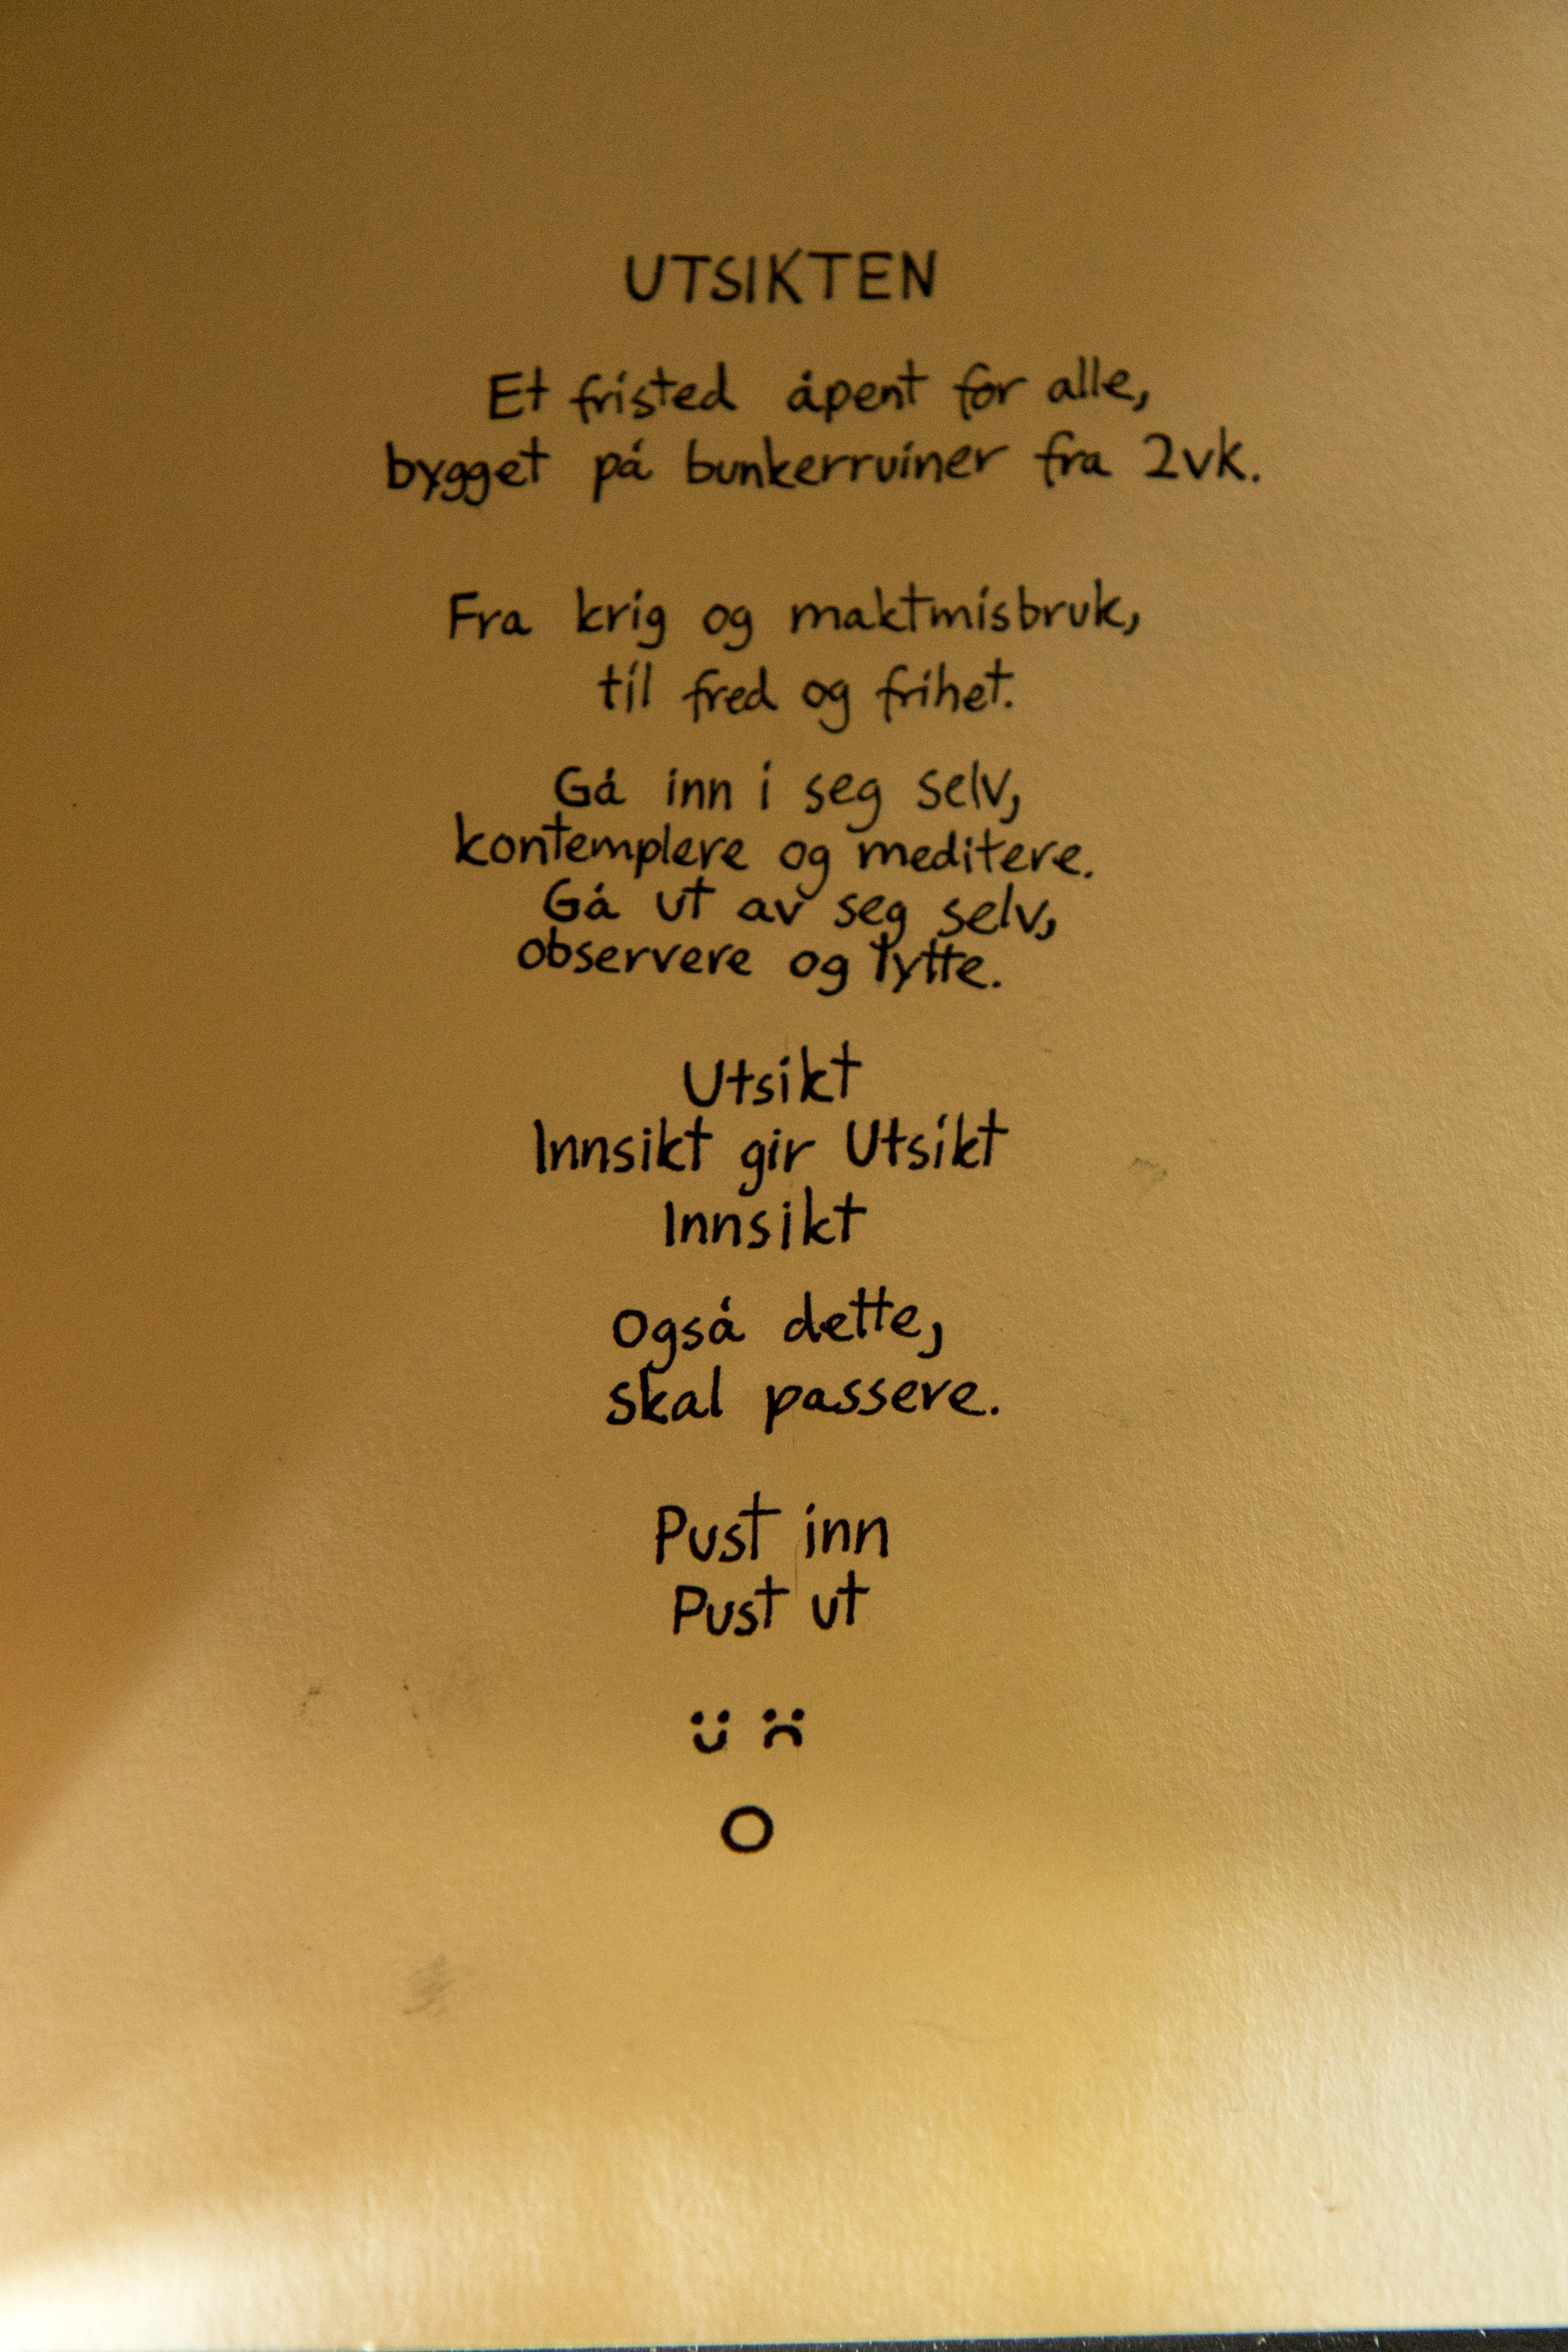 UTSIKTEN
Et fristed åpent for alle,
bygget på bunkerruiner fra 2vk.
Fra krig og maktmisbruk,
til fred og frihet.
Gå inn i seg selv,
kontemplere og meditere.
Gå ut av seg selv,
observere og lytte.
Utsikt
Innsikt gir Utsikt
Innsikt
Også dette,
skal passere.
Pust inn
Pust ut